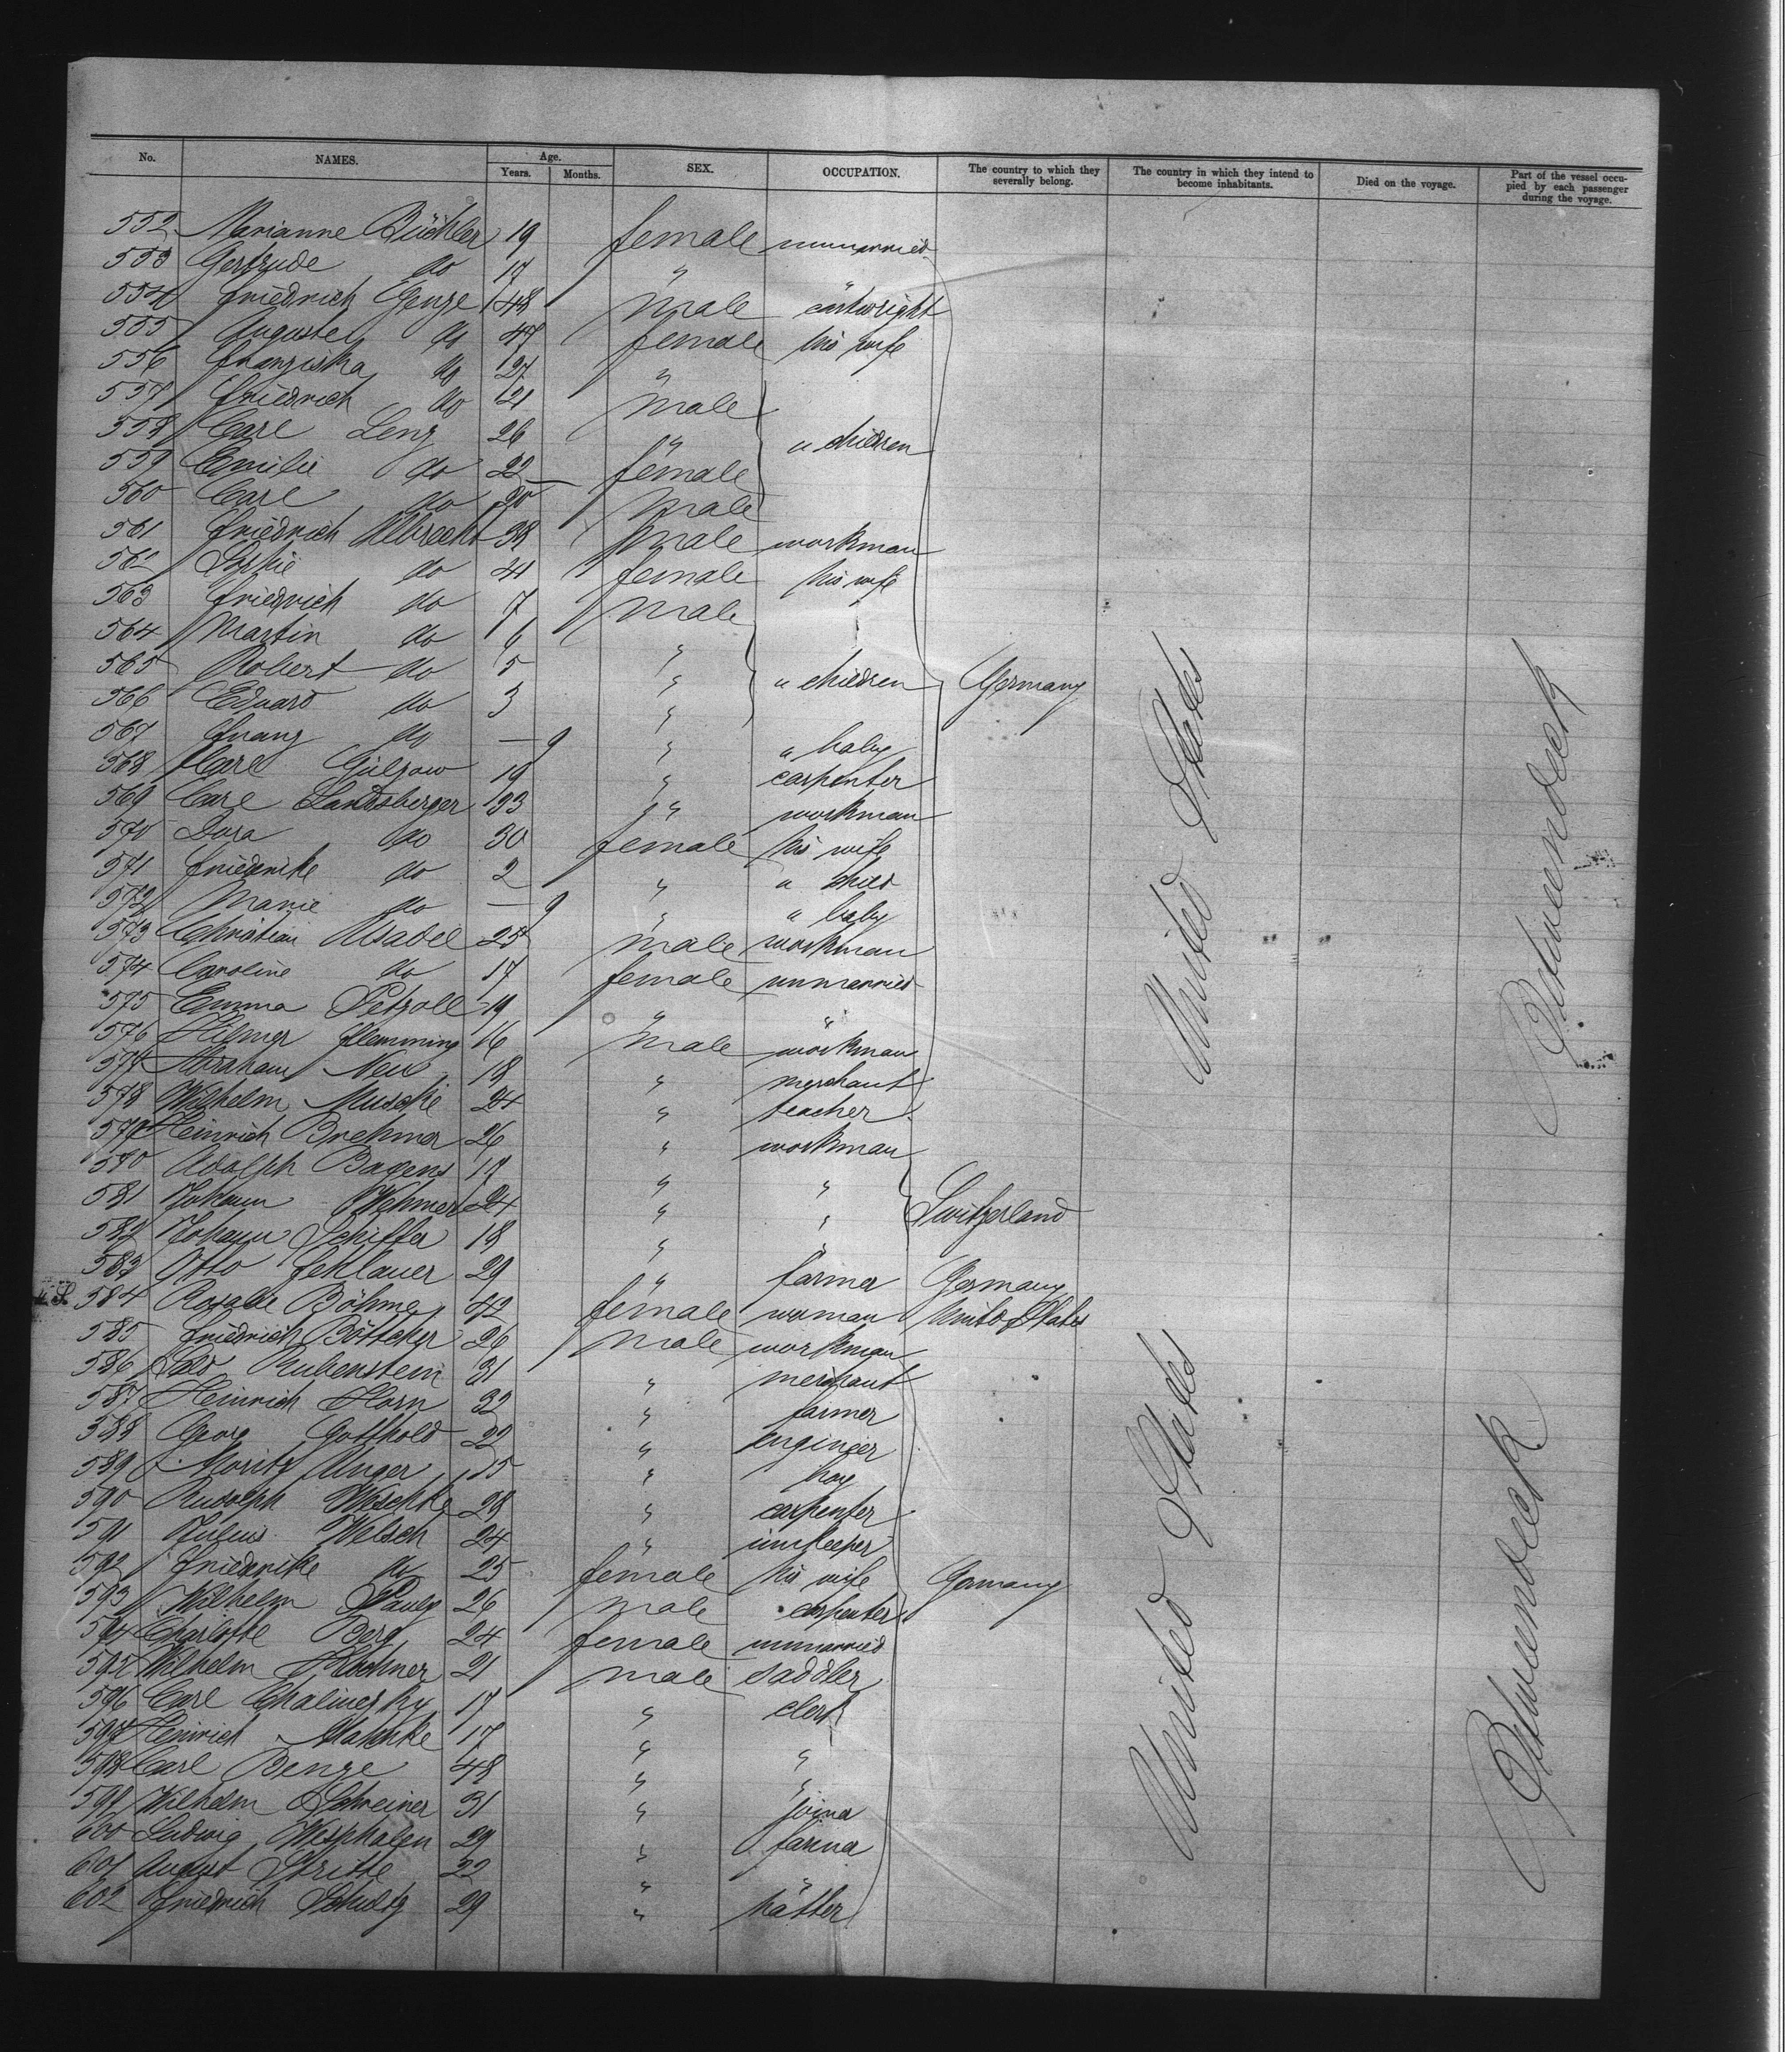 No. NAMES. Age. Years. Months. SEX. OCCUPATION. The country to which they severally belong. The country in which they intend to become inhabitants. Died on the voyage. Part of the vessel occupied by each passenger during the voyage.
552 Marianne Büchler 19 female unmarried
553 Gertrude do 17 " "
554 Friedrich Genze 48 male cartwright
555 Auguste do 47 female his wife
556 Franziska do 27 "
557 Friedrich do 21 male
558 Carl Lenz 26 " " children
559 Emilie do 22 female
560 Carl do 20 male
561 Friedrich Albrecht 38 male workman
562 Sophie do 41 female his wife
563 Friedrich do 7 male
564 Martin do 6 "
565 Robert do 5 " " children Germany
566 Eduard do 3 "
567 Franz do — 9 " " baby
568 Carl Gülzow 19 " carpenter
569 Carl Landsberger 33 " workman
570 Dora do 30 female his wife
571 Friederike do 2 " " child
572 Marie do — 9 " " baby
573 Christian Usadel 25 male workman
574 Caroline do 17 female unmarried
575 Emma Petzoll 19 " "
576 Hilmer Flemming 16 male workman
577 Abraham Neu 18 " merchant
578 Wilhelm Muschi 24 " teacher
579 Heinrich Brehmer 26 " workman
580 Adolph Bagens 17 " "
581 Johann Wehmer 24 " " Switzerland
582 Johann Schiffer 18 " "
583 Otto Fehlauer 29 " farmer Germany
584 Rosalie Böhme 42 female woman United States
585 Friedrich Böttcher 26 male workman
586 Rubenstein 31 " merchant
587 Heinrich Horn 32 " farmer
588 Georg Gotthold 22 " enginier
589 Moritz Unger 15 " boy
590 Rudolph Weschke 28 " carpenter
591 Julius Welsch 24 " innkeeper
592 Friederike do 25 female his wife Germany
593 Wilhelm Pauly 26 male carpenter
594 Charlotte Berg 24 female unmarried
595 Wilhelm Blochner 21 male saddler
596 Carl Chalinesky 17 " clerk
597 Heinrich Maschke 17 " "
598 Carl Benze 48 " "
599 Wilhelm Schreiner 31 " joiner
600 Ludwig Westphalen 29 " farmer
601 August Stritte 22 " "
602 Friedrich Schultz 29 " hatter
United States
Betweendeck
United States
Betweendeck